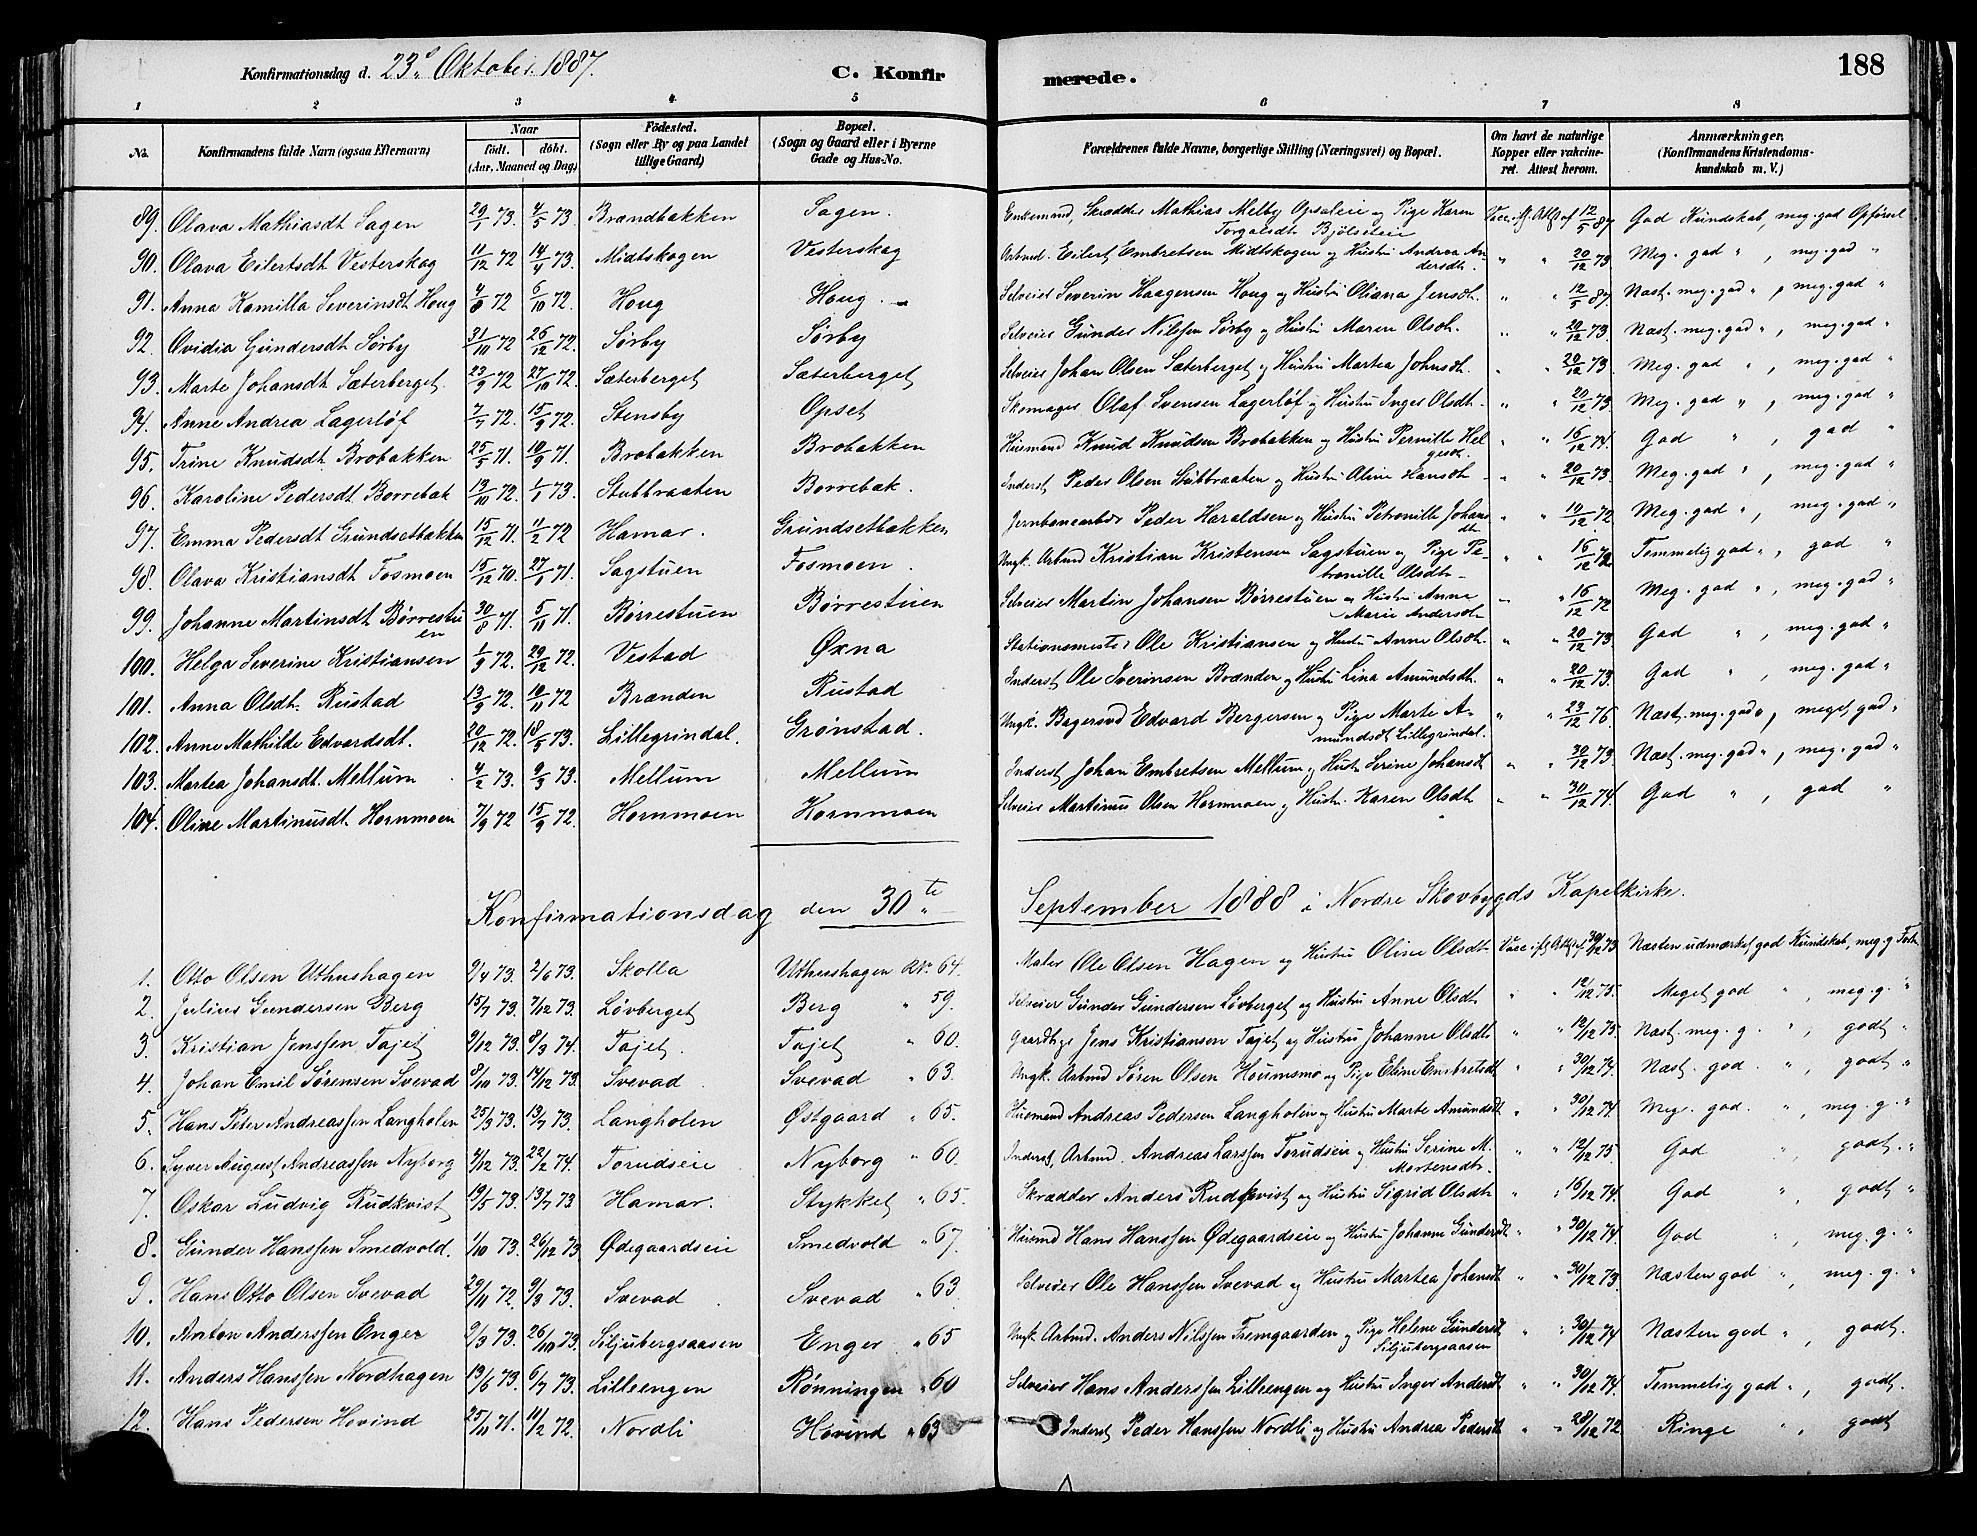 Konfirmationsdag d. 23d Oktober 1887.
C. Konfirmerede.
188
1 2 3 4 5 6 7 8
No. Konfirmandens fulde Navn (ogsaa Efternavn) Naar födt. döbt. (Aar, Maaned og Dag) Födested. (Sogn eller By og paa Landet tillige Gaard) Bopæl. (Sogn og Gaard eller i Byerne Gade og Hus-No. Forældrenes fulde Navne, borgerlige Stilling (Næringsvei) og Bopæl. Om havt de naturlige Kopper eller vakcineret. Attest herom. Anmærkninger. (Konfirmandens Kristendomskundskab m. V.)
89. Olava Mathiasdt Sagen 29/1 73. 4/5 73. Brændbakken Sagen. Enkemand, Skrædder Mathias Melby Opsaleie og Pige Karen Torgalsdt Bjölseteie Vacc. 12/5 87 God Kundskab, meg. god Opförsel
90. Olava Eilertsdt Vesterskog 11/12 72 14/4 73. Midtskogen Vesterskog Arbmd. Eilert Embretsen Midtskogen og Hustru Andrea Andersdt. " " 20/12 73 Meg. god " , meg. god "
91. Anna Kamilla Severinsdt Houg 4/8 72 6/10 72. Houg Houg. Selveier Severin Haagensen Houg og Hustru Oliana Jensdt. " " 12/5 87. Næst. meg. god " , meg. god "
92. Ovidia Gundersdt Sørby 31/10 72 26/12 72. Sørby Sørby Selveier Gunder Nilssen Sørby og Hustru Maren Olsdt. " " 20/12 73. Næst. meg. god " , meg. god "
93. Marte Johansdt Sæterberget. 23/9 72 27/10 72. Sæterberget Sæterberget Selveier Johan Olsen Sæterberget og Hustru Martea Johnsdt. " " 20/12 73. Meg. god " , meg. god "
94. Anne Andrea Lagerlöf 7/7 72. 15/9 72. Stensby Opset Skomager Olaf Svensen Lagerlöf og Hustru Inger Olsdt. " " 20/12 73. Meg. god " , meg. god "
95. Trine Knudsdt Brobakken 25/5 71. 10/9 71. Brobakken Brobakken Husmand Knud Knudsen Brobakken og Hustru Pernille Helgesdt. " " 16/12 74. God " , god "
96. Karoline Pedersdt Borrebak 13/10 72. 1/1 73. Stubbraaten Borrebak. Inderst Peder Olsen Stubbraaten og Hustru Oline Hansdt. " " 20/12 73. Meg. god " , meg. god "
97. Emma Pedersdt Grundsetbakken 15/12 71. 11/2 72 Hamar. Grundsetbakken Jernbanearbdr Peder Haraldsen og Hustru Petronille Johansdt " " 10/12 72 Meg. god " , meg. god "
98. Olava Kristiansdt Fosmoen 15/12 70. 27/1 71. Sagstuen Fosmoen. Ungk. Arbmd Kristian Kristensen Sagstuen og Pige Petronille Olsdt. " " 16/12 72 Temmelig god " , god "
99. Johanne Martinsdt Børrestuen 30/8 71. 5/11 71. Børrestuen Børrestuen Selveier Martin Johansen Børrestuen og Hustru Anne Marie Andersdt " " 16/12 72 Meg. god " , meg. god "
100. Helga Severine Kristiansen 1/9 72. 29/12 72. Vestad Øxna Stationsmester Ole Kristiansen og Hustru Anne Olsdt. " " 20/12 73. God " , meg. god "
101. Anna Olsdt. Rustad 13/9 72. 10/11 72 Brænden Rustad Inderst Ole Iverinsen Brænden og Hustru Lina Amundsdt. " " 20/12 73. God " , meg. god "
102. Anne Mathilde Edvardsdt. 20/12 72. 18/5 73. Lillegrindal. Grønstad. Ungk. Bagersvd Edvard Bergersen og Pige Marte Amundsdt Lillegrindal. " " 23/12 76. Næst. meg. god " , meget god "
103. Martea Johansdt. Mellum 4/2 73. 9/3 73. Mellum Mellum Inderst Johan Embretsen Mellum og Hustru Serine Johansdt " " 30/12 73. Næst. meg. god " , meg. god "
104. Oline Martinusdt. Hornmoen 7/9 72 15/9 72. Hornmoen Hornmoen Selveier Martinus Olsen Hornmoen og Hustru Karen Olsdt. " " 30/12 74. God " , god "
Konfirmationsdag den 30te September 1888 i Nordre Skovbygds Kapelkirke.
1. Otto Olsen Uthushagen 2/4 73. 2/6 73. Skolla Uthushagen Rd. 64. Maler Ole Olsen Hagen og Hustru Oline Olsdt. Vacc. 30/12 73 Næsten udmærket god Kundskab, meg. g.
2. Julius Gundersen Berg 15/7 73. 7/12 73. Løvberget Berg " 59. Selveier Gunder Gundersen Løvberget og Hustru Anne Olsdt. " " 12/12 75. Meget god " , meg. g. "
3. Kristian Jenssen Tajet 9/12 73. 8/3 74. Tajet. Tajet " 60. Gaardbrger Jens Kristiansen Tajet og Hustru Johanne Olsdt. " " 12/12 75. Næst. meg. g. " , godt "
4. Johan Emil Sørensen Svevad 8/10 73. 14/12 73. Svevad. Svevad " 63. Ungk. Arbmd Sören Olsen Houmsmo og Pige Eline Embretsdt " " 30/12 74. Næst. god. " , godt "
5. Hans Peter Andreassen Langholen 25/3 73. 13/7 73. Langholen Østgaard " 65. Husmand Andreas Pedersen Langholen og Hustru Marte Amundsdt " " 30/12 74. Meg. god. " , meg. g. "
6. Syver August Andreassen Nyborg 4/12 73. 22/2 74. Torudseie Nyborg " 60. Inderst, Arbmd. Andreas Larssen Torudseie og Hustru Serine M. Mortensdt. " " 12/12 75. God " , godt. "
7. Oskar Ludvig Rudkvist 19/5 73. 13/7 73. Hamar. Stykket " 65. Skrædder Anders Rudkvist og Hustru Sigrid Olsdt " " 16/12 74. God " , godt "
8. Gunder Hanssen Smedvold. 1/10 73. 26/12 73 Ødegaardseie Smedvold " 67. Husmd Hans Hanssen Ødegaardseie og Hustru Johanne Gundersdt " " 30/12 74. God " , meg. g. "
9. Hans Otto Olsen Svevad 29/11 72. 9/3 73. Svevad. Svevad " 63. Selveier Ole Hanssen Svevad og Hustru Martea Johansdt " " 30/12 73. Næsten god " , meg. g. "
10. Anton Anderssen Enger 2/3 73. 26/10 73. Siljubergsaasen Enger " 65 Ungk. Arbmd. Anders Nilssen Fremgaarden og Pige Helene Gundersdt Siljubergsaasen " " 30/12 74 Næsten god " , godt.
11. Anders Hanssen Nordhagen 13/6 73. 6/7 73. Lilleengen Rønningen " 60 Selveier Hans Anderssen Lilleengen og Hustru Inger Andersdt " " 30/12 74. Temmelig god " , godt.
12. Hans Pedersen Hovind 25/11 71. 11/2 72. Nordli Hovind " 63 Inderst Peder Hanssen Nordli og Hustru Andrea Pedersdt " " 28/12 72 Ringe " , godt